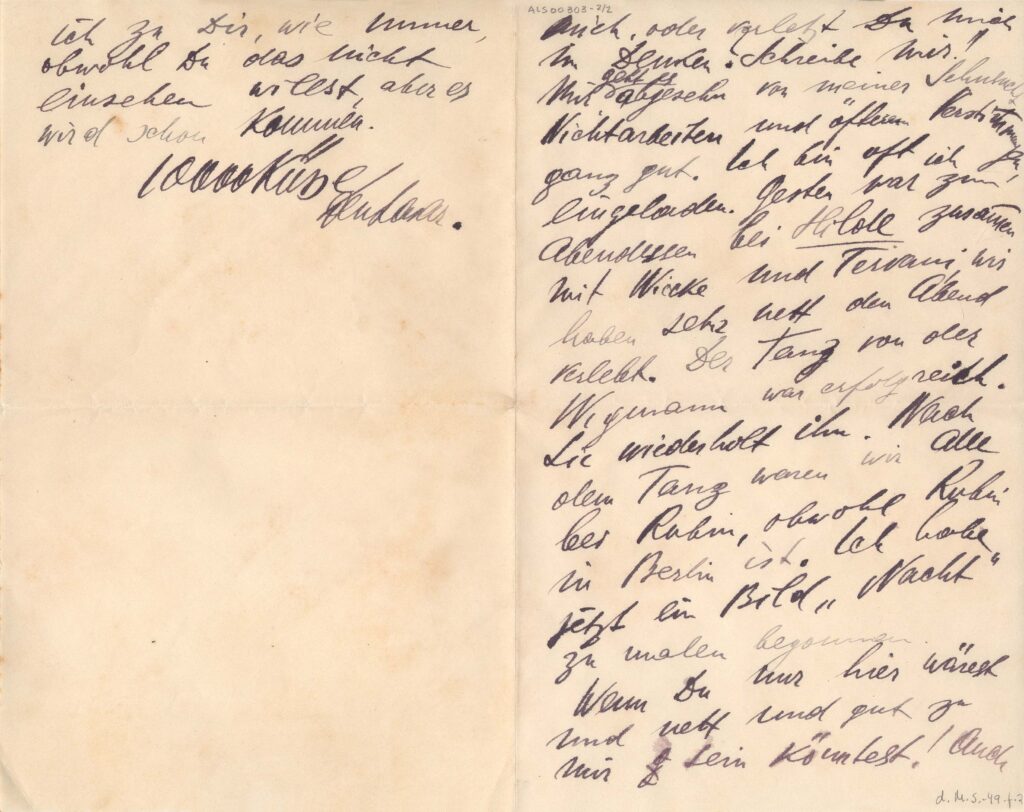 ALS00303-2/2
mich, oder verletzt Du mich
im Denken. Schreibe mir!
Mir geht es abgesehn von meiner Sehnsucht,
Nichtarbeiten und öfteren Verstimmungen,
ganz gut. Ich bin oft ich
eingeladen. Gestern war zum
Abendessen bei Hilde zusammen
mit Wiecke und Tervani wir
haben sehr nett den Abend
verlebt. Der Tanz von der
Wigmann war erfolgreich.
Sie wiederholt ihn. Nach
dem Tanz waren wir Alle
bei Rubin, obwohl Rubin
in Berlin ist. Ich habe
jetzt ein Bild „Nacht“
zu malen begonnen
Wenn Du nur hier wärest
und nett und gut zu
mir sein könntest! Auch
ich zu Dir, wie immer,
obwohl Du das nicht
einsehen willst, aber es
wird schon kommen.
10000 Küsse
Dein Lasar.
d. M. S.-49.f-2